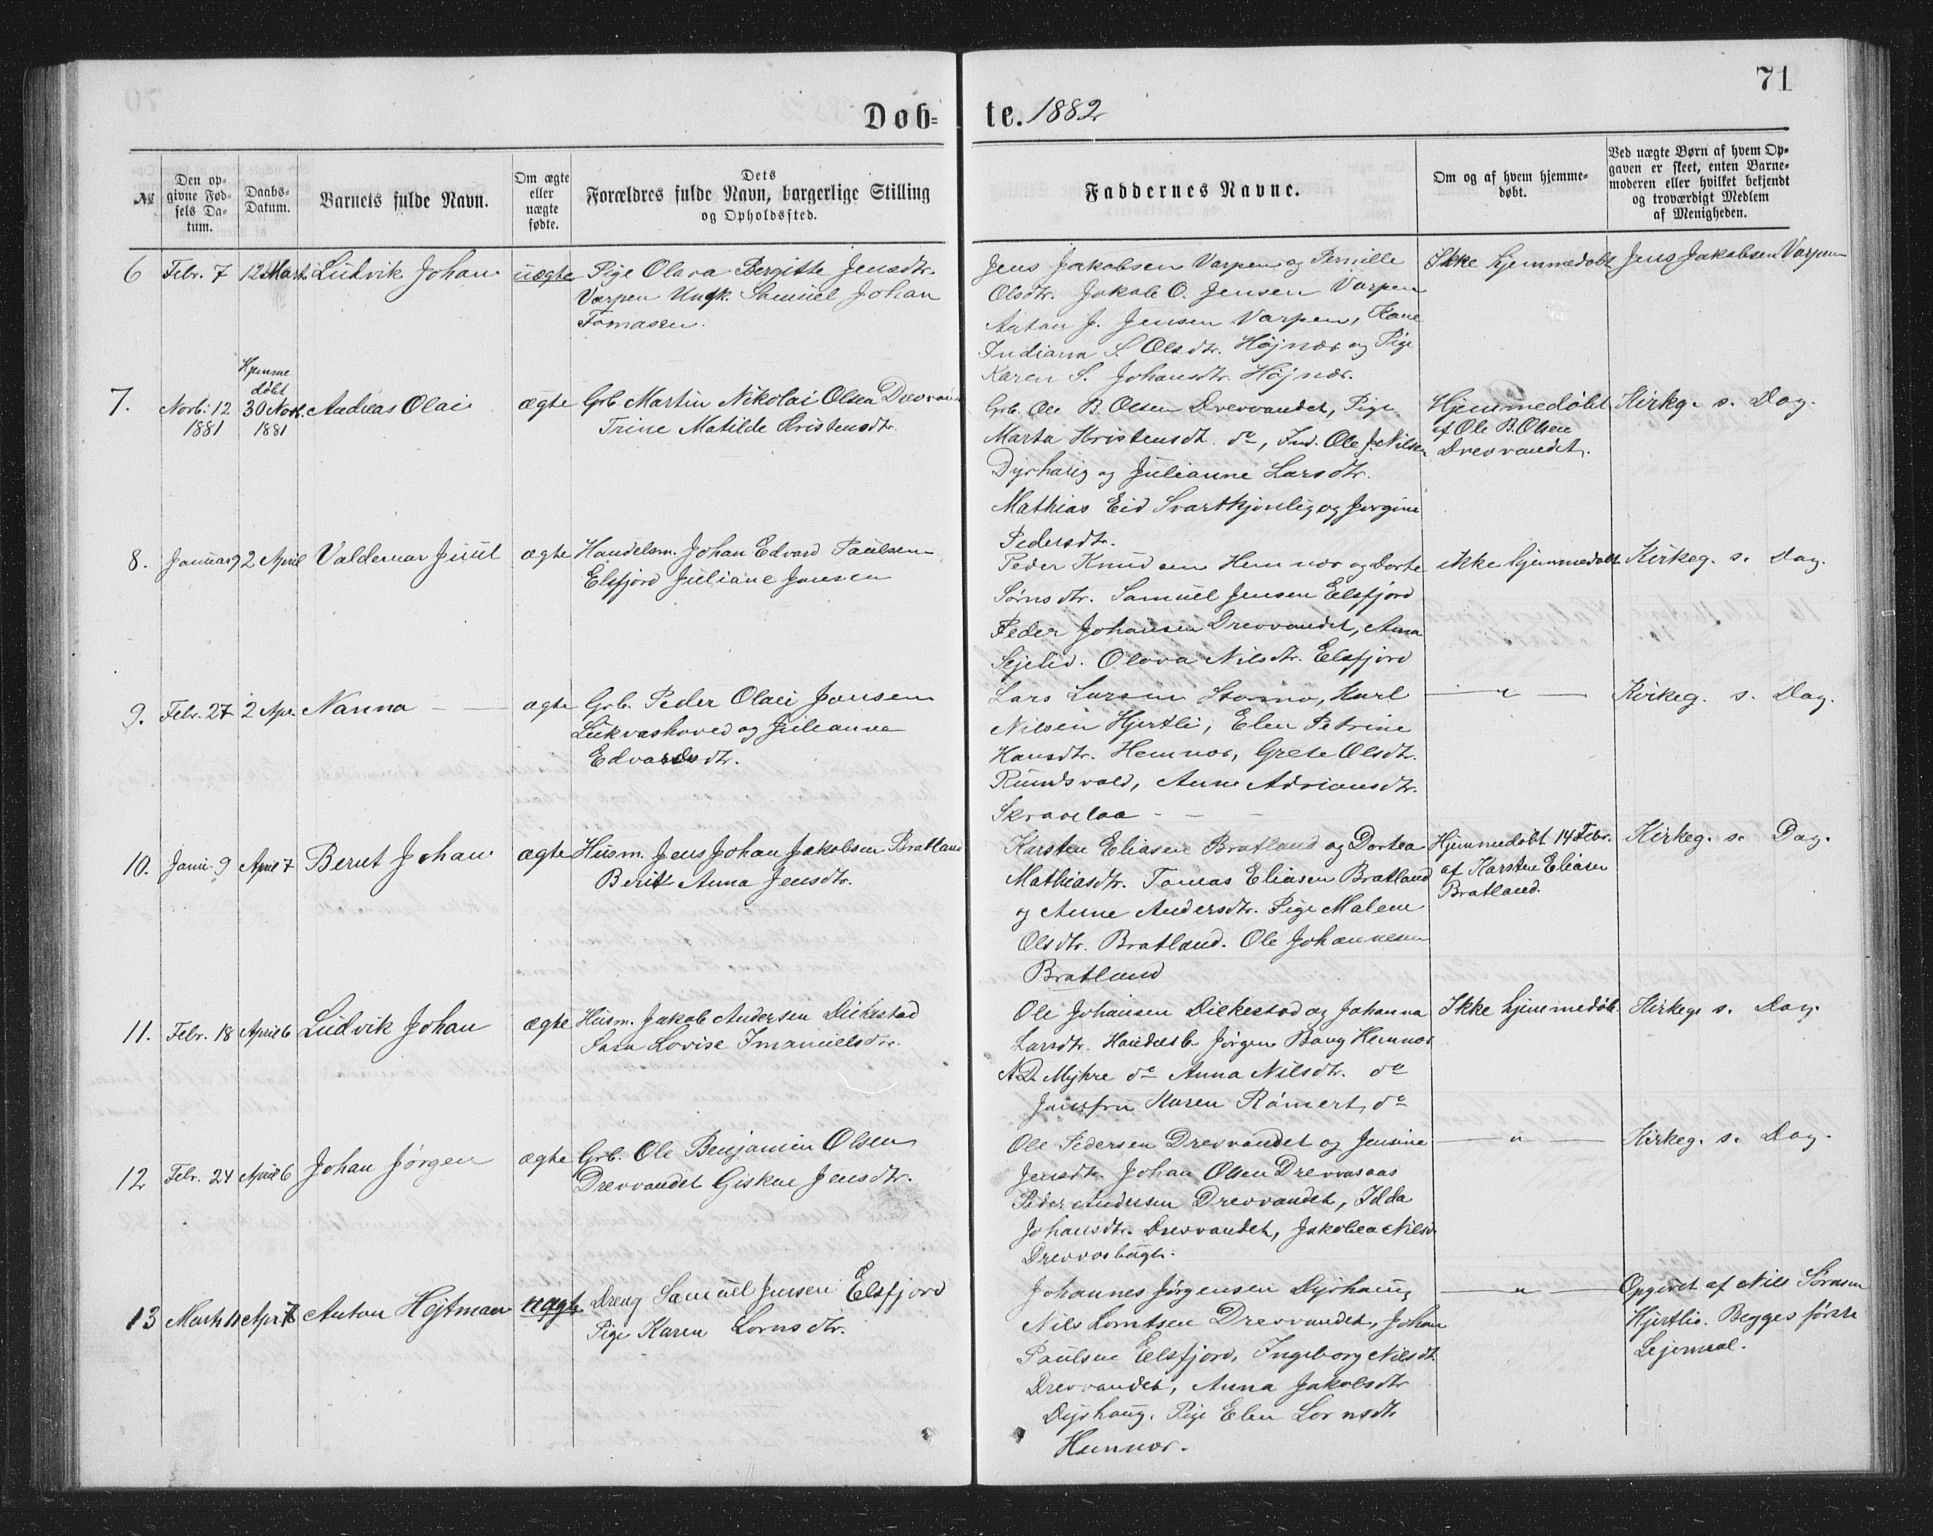 71
Døb=te. 1882
№
Den opgivne Fødsels Datum.
Daabs-Datum.
Barnets fulde Navn.
Om ægte eller uægte fødte.
Dets Forældres fulde Navn, borgerlige Stilling og Opholdssted.
Faddernes Navne.
Om og af hvem hjemmedøbt.
Ved uægte Børn af hvem Opgaven er skeet, enten Barnemoderen eller hvilket bekjendt og troværdigt Medlem af Menigheden.
6 Febr. 7 12 Marts Ludvik Johan uægte Pige Olava Bergitte Jensdtr.
Varpen Ungk. Samuel Johan
Tomassen.
Jens Jakobsen Varpen og Pernille
Olsdtr. Jakob O. Jensen Varpen
Anton J. Jensen Varpen, Kone
Indiana S. Olsdtr. Højnæs og Pige
Karen S. Johansdtr. Højnæs.
Ikke hjemmedøbt
Jens Jakobsen Varpen
7. Novb. 12 1881
Hjemme
døbt
30 Nov.
1881
Andreas Olai ægte Grb. Martin Nikolai Olsen Drevvand
Trine Matilde Kristensdtr.
Grb. Ole B. Olsen Drevvandet, Pige
Marta Kristensdt. do, Ind. Ole J. Nilsen
Dyrhaug og Julianne Larsdtr.
Mathias Eid Svartkjønlig og Jørgine
Pedersdtr.
Hjemmedøbt
af Ole B. Olsen
Drevvandet.
Kirkeg. s. Dag.
8. Januar 9 2 April Valdemar Juul ægte Handelsm. Johan Edvard Paulsen
Elsfjord Juliane Jensen
Peder Knudsen Hemnæs og Dorte
Sørnsdtr. Samuel Jensen Elsfjord
Peder Johansen Drevvandet, Anna
Sejelid. Olava Nilsdtr. Elsfjord
ikke hjemmedøbt
Kirkeg. s. Dag.
9. Febr. 27 2 Apr. Nanna — — ægte Grb. Peder Olaei Jonsen
Lukvashoved og Julianna
Edvardsdtr.
Lars Larsen Stamo, Karl
Nilsen Hjertli, Elen Petrine
Hansdtr. Hemnæs, Grete Olsdt.
Rundsvold, Anne Adriansdtr.
Skravlaa - - -
— " —
Kirkeg. s. Dag.
10. Janu. 9 April 7 Bernt Johan ægte Husm. Jens Johan Jakobsen Bratland
Berit Anna Jensdtr.
Karsten Eliasen Bratland og Dortea
Mathiasdtr. Tomas Eliasen Bratland
og Anne Andersdtr. Pige Malene
Olsdtr. Bratland. Ole Johannesen
Bratland
Hjemmedøbt 14 Febr.
af Karsten Eliasen
Bratland.
Kirkeg. s. Dag.
11. Febr. 18 April 6 Ludvik Johan ægte Husm. Jakob Andersen Dilkestad
Sara Lovise Imanuelsdtr.
Ole Johansen Dilkestad og Johanna
Larsdtr. Handelsb. Jørgen Bang Hemnæs
A. D. Myhre do Anna Nilsdtr. do
Jomfru Karen Rømert, do
Ikke hjemmedøb
Kirkeg. s. Dag.
12 Febr. 24 April 6 Johan Jørgen ægte Grb. Ole Benjamin Olsen
Drevvandet Gisken Jensdtr.
Ole Pedersen Drevvandet og Jensine
Jensdt. Johan Olsen Drevvasaas
Peder Andersen Drevvandet, Idda
Johansdtr. Drevvandet, Jakobea Nilsd
Drevvasbugt.
— " —
Kirkeg. s. Dag.
13 Marts 11 April 7 Anton Hejtman uægte Dreng Samuel Jensen Elsfjord
Pige Karen Lornsdtr.
Johannes Jørgensen Dyrhaug
Nils Lorntsen Drevvandet, Johan
Paulsen Elsfjord, Ingeborg Nilsdt.
Drevvandet, Anna Jakobsdtr
Dyrhaug. Pige Elen Lornsdt.
Hemnæs.
— " —
Opgivet af Nils Sørnsen
Hjertlie. Begges første
Lejemaal.